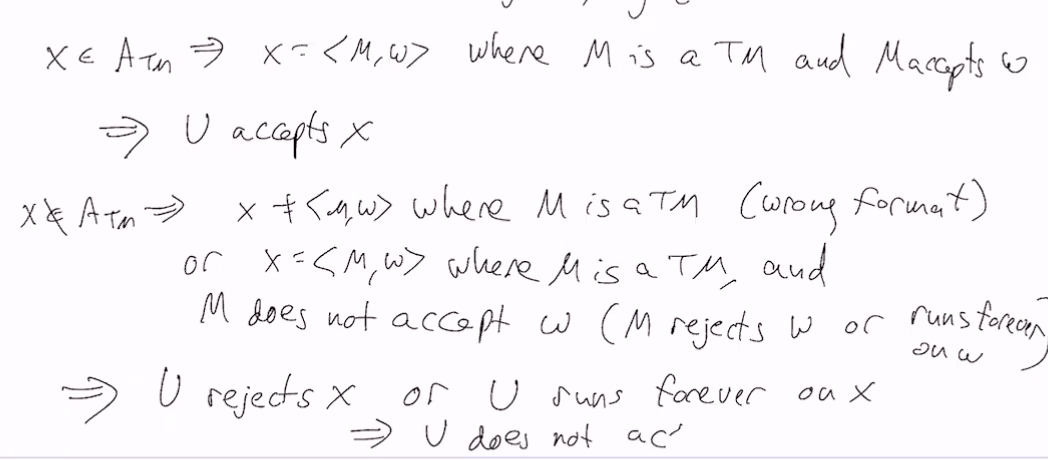 x ∈ A_TM ⇒ x = <M,w> where M is a TM and M accepts w
⇒ U accepts x
x ∉ A_TM ⇒ x ≠ <M,w> where M is a TM (wrong format)
or x = <M,w> where M is a TM, and
M does not accept w (M rejects w or runs forever
on w)
⇒ U rejects x or U runs forever on x
⇒ U does not ac